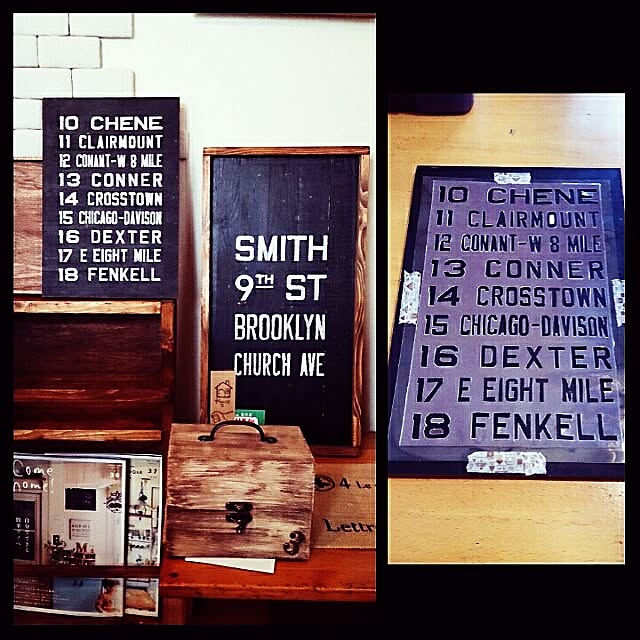 10 CHENE
11 CLAIRMOUNT
12 CONANT-W 8 MILE
13 CONNER
14 CROSSTOWN
15 CHICAGO-DAVISON
16 DEXTER
17 E EIGHT MILE
18 FENKELL
SMITH
9TH ST
BROOKLYN
CHURCH AVE
Come
home
37
3
4
10 CHENE
11 CLAIRMOUNT
12 CONANT-W 8 MILE
13 CONNER
14 CROSSTOWN
15 CHICAGO-DAVISON
16 DEXTER
17 E EIGHT MILE
18 FENKELL